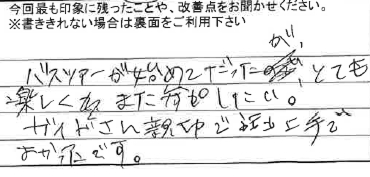 今回最も印象に残ったことや、改善点をお聞かせください。
※書ききれない場合は裏面をご利用下さい
バスツアーが始めてだったが、とても
楽しく また何もしたい。
ガイドさん親切で話上手で
よかったです。